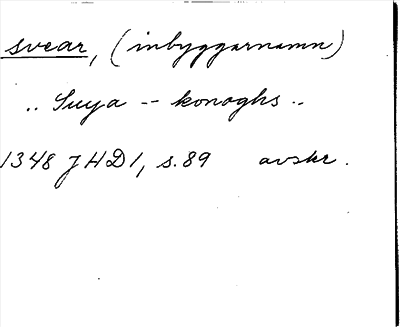 svear, (inbyggarnamn)
.. Suya -- konoghs ..
1348 JHD1, s.89 avskr.